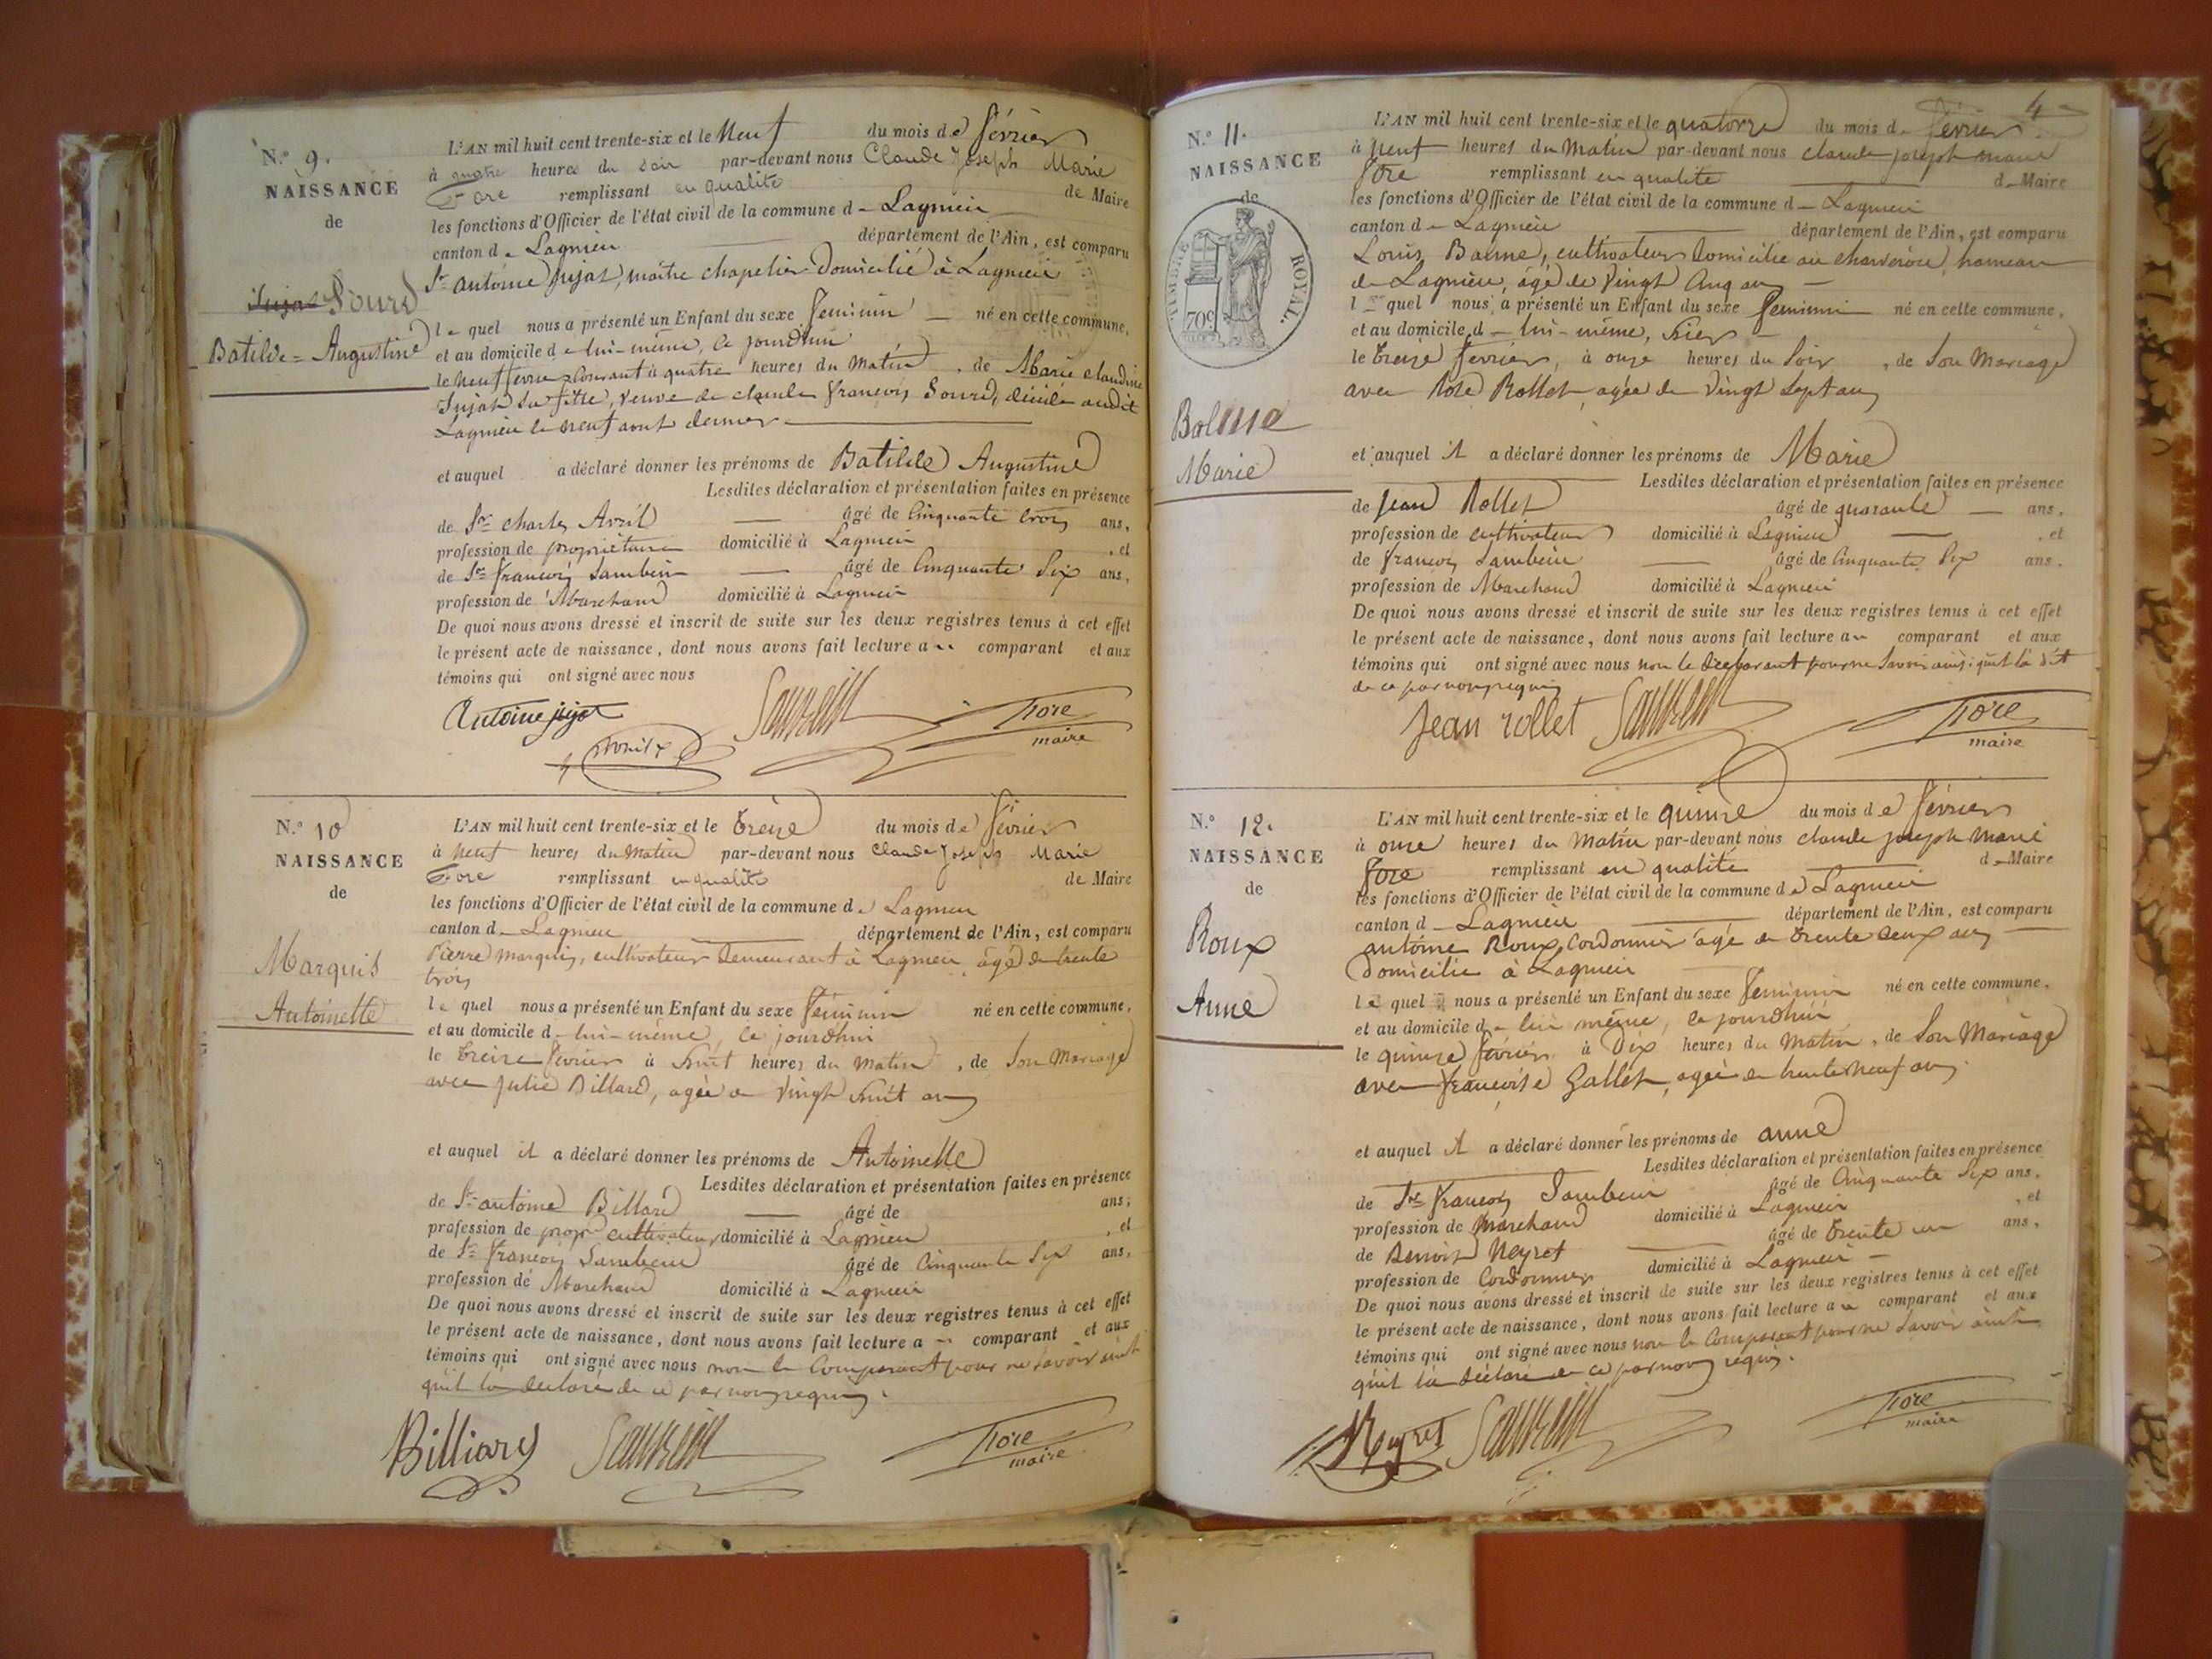 N.° 9.
NAISSANCE
de
Jujat Sourd
Batilde = Augustine
L'AN mil huit cent trente-six et le Neuf du mois de février
à quatre heures du soir par-devant nous Claude Joseph Marie
Tore remplissant en qualité de Maire
les fonctions d'Officier de l'état civil de la commune d- Lagnieu
canton d- Lagnieu département de l'Ain, est comparu
Sr antoine Jujat, maître chapelier domicilié à Lagnieu
le quel nous a présenté un Enfant du sexe feminin né en cette commune,
et au domicile de lui-même, ce jourdhui
le neuf fevrier courant à quatre heures du matin, de Marie claudine
Jujat sa fille, veuve de claude françois Sourd, décédé audit
Lagnieu le neuf aout dernier
et auquel a déclaré donner les prénoms de Batilde Augustine
Lesdites déclaration et présentation faites en présence
de Sr charles Avril âgé de Cinquante trois ans,
profession de propriétaire domicilié à Lagnieu, et
de Sr françois Sambein âgé de Cinquante Six ans,
profession de Marchand domicilié à Lagnieu
De quoi nous avons dressé et inscrit de suite sur les deux registres tenus à cet effet
le présent acte de naissance, dont nous avons fait lecture au comparant et aux
témoins qui ont signé avec nous
Antoine jujat
Tore
maire
N.° 10
NAISSANCE
de
Marquis
Antoinette
L'AN mil huit cent trente-six et le treize du mois de février
à neuf heures du matin par-devant nous Claude Joseph Marie
Tore remplissant en qualité de Maire
les fonctions d'Officier de l'état civil de la commune de Lagnieu
canton d- Lagnieu département de l'Ain, est comparu
Pierre marquis, cultivateur demeurant à Lagnieu âgé de trente
trois
le quel nous a présenté un Enfant du sexe féminin né en cette commune,
et au domicile d- lui-même, ce jourdhui
le treize février à huit heures du matin, de Son Mariage
avec julie Billard, agée de vingt huit ans
et auquel il a déclaré donner les prénoms de Antoinette
Lesdites déclaration et présentation faites en présence
de Sr antoine Billard âgé de ans,
profession de propre cultivateur domicilié à Lagnieu, et
de Sr françois Sambein âgé de Cinquante Six ans,
profession de Marchand domicilié à Lagnieu
De quoi nous avons dressé et inscrit de suite sur les deux registres tenus à cet effet
le présent acte de naissance, dont nous avons fait lecture au comparant et aux
témoins qui ont signé avec nous non le Comparant pour ne savoir ainsi
qu'il la déclaré de ce par nous requis.
Billiard
Tore
maire
4
N.° 11.
NAISSANCE
de
TIMBRE ROYAL.
70c
Balme
Marie
L'AN mil huit cent trente-six et le quatorze du mois d- février
à neuf heures du Matin par-devant nous claude joseph marie
Tore remplissant en qualité d- Maire
les fonctions d'Officier de l'état civil de la commune d- Lagnieu
canton d- Lagnieu département de l'Ain, est comparu
Louis Balme, cultivateur domicilié au charveron, hameau
de Lagnieu, âgé de Vingt Cinq ans
le quel nous a présenté un Enfant du sexe feminin né en cette commune,
et au domicile d- lui-même, hier
le treize fevrier, à onze heures du Soir, de Son Mariage
avec Rose Rollet, agée de Vingt Sept ans
et auquel il a déclaré donner les prénoms de Marie
Lesdites déclaration et présentation faites en présence
de Jean Rollet âgé de quarante ans,
profession de cultivateur domicilié à Lagnieu, et
de françois Sambein âgé de Cinquante Six ans,
profession de Marchand domicilié à Lagnieu
De quoi nous avons dressé et inscrit de suite sur les deux registres tenus à cet effet
le présent acte de naissance, dont nous avons fait lecture au comparant et aux
témoins qui ont signé avec nous non le declarant pour ne Savoir ainsi qu'il la dit
de ce par nous requis
Jean rollet
Tore
maire
N.° 12.
NAISSANCE
de
Roux
Anne
L'AN mil huit cent trente-six et le quinze du mois de février
à onze heures du Matin par-devant nous claude joseph marie
Tore remplissant en qualité d- Maire
les fonctions d'Officier de l'état civil de la commune de Lagnieu
canton d- Lagnieu département de l'Ain, est comparu
antoine Roux, Cordonnier agé de trente deux ans
domicilié à Lagnieu
le quel nous a présenté un Enfant du sexe feminin né en cette commune,
et au domicile de lui même, ce jourdhui
le quinze février à Dix heures du Matin, de Son Mariage
avec françoise Gallet, agée de trente neuf ans
et auquel il a déclaré donner les prénoms de anne
Lesdites déclaration et présentation faites en présence
de Sr françois Sambein âgé de Cinquante Six ans,
profession de Marchand domicilié à Lagnieu, et
de Benoit Neyret âgé de trente un ans,
profession de Cordonnier domicilié à Lagnieu
De quoi nous avons dressé et inscrit de suite sur les deux registres tenus à cet effet
le présent acte de naissance, dont nous avons fait lecture au comparant et aux
témoins qui ont signé avec nous non le Comparant pour ne savoir ainsi
qu'il la déclaré de ce par nous requis.
Neyret
Tore
maire